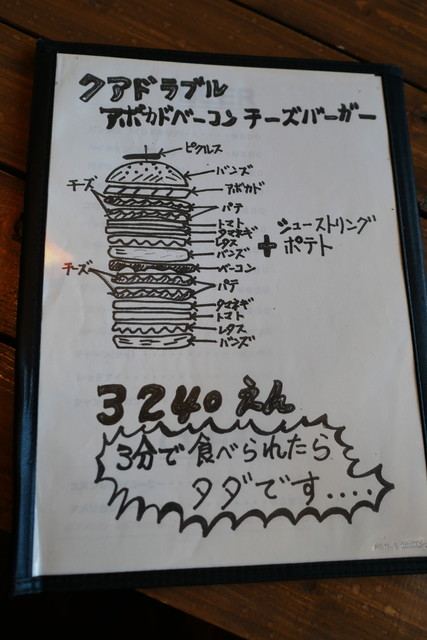 クアドラブル
アボカドベーコンチーズバーガー
ピクルス
バンズ
チーズ
アボカド
パテ
トマト
タマネギ
レタス
バンズ
+ シューストリング
ポテト
チーズ
ベーコン
パテ
タマネギ
トマト
レタス
バンズ
3240えん
3分で食べられたら
タダです....